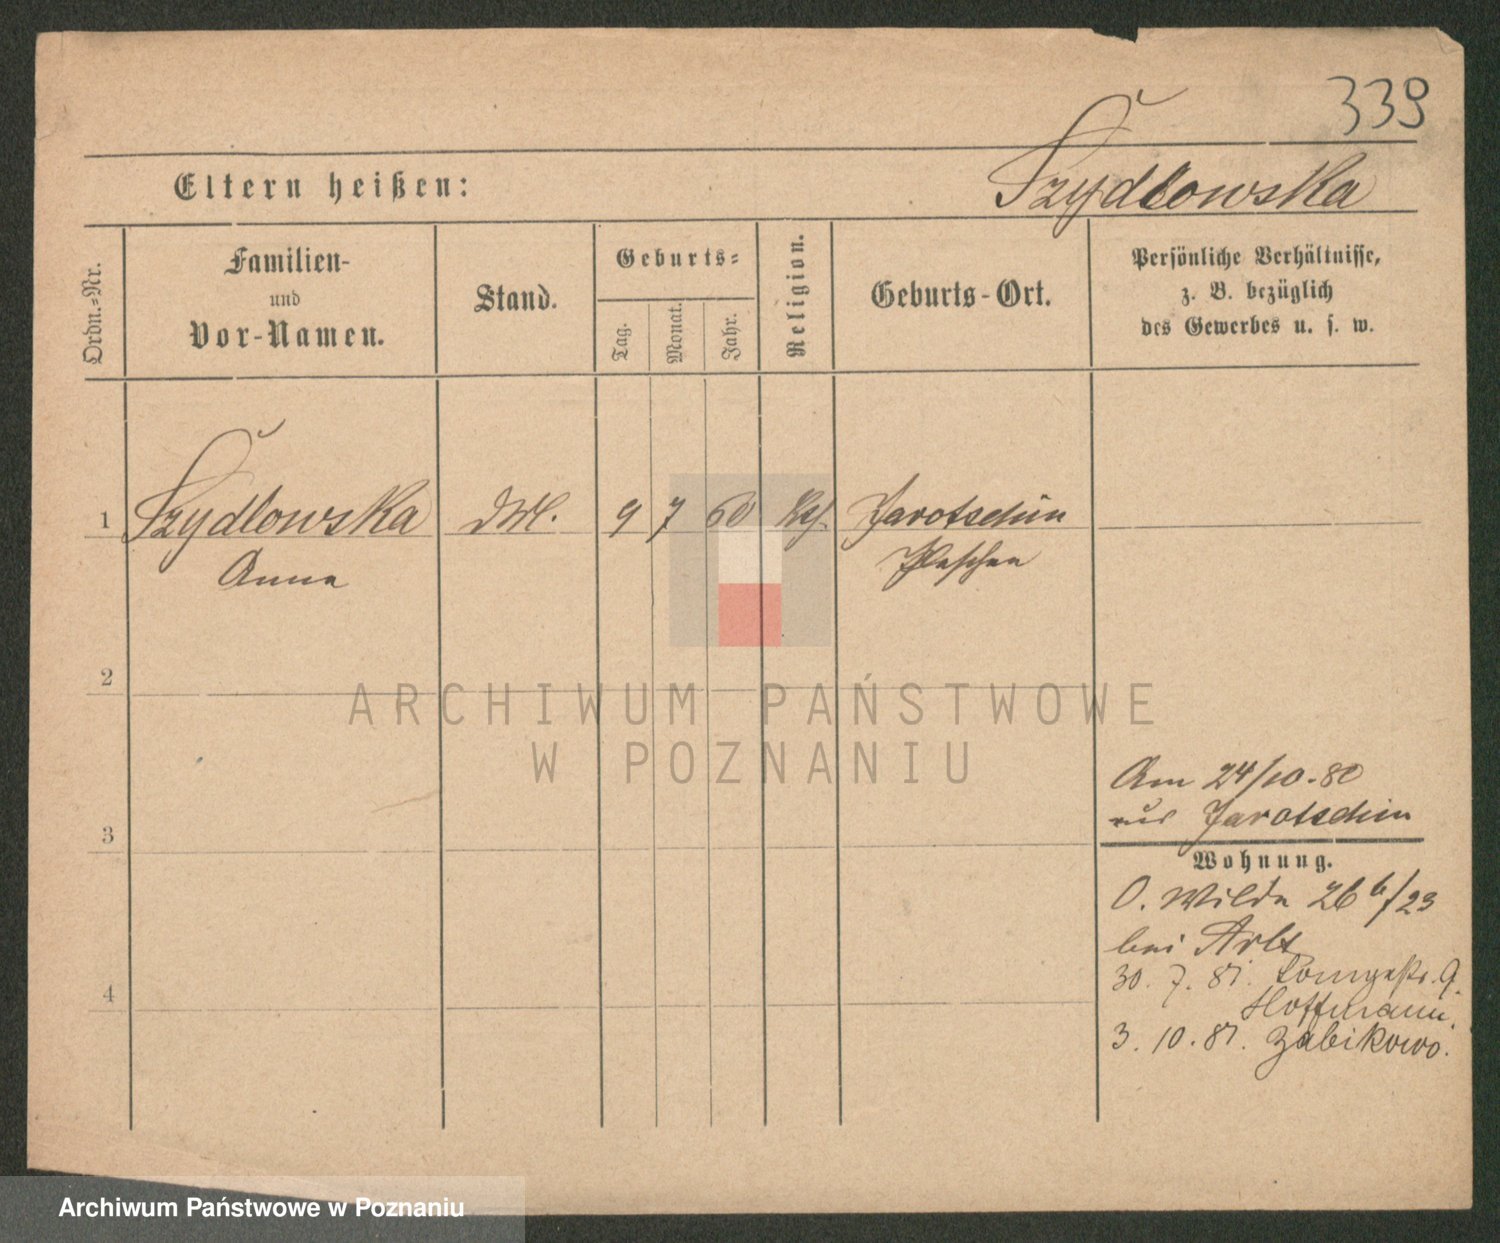 339
Szydlowska
Eltern heißen:
Ordn.-Nr.
Familien-
und
Vor-Namen.
Stand.
Geburts-
Tag.
Monat.
Jahr.
Religion.
Geburts-Ort.
Persönliche Verhältnisse,
z. B. bezüglich
des Gewerbes u. s. w.
1 Szydlowska 9 7 60 Jarotschin
Anna Pleschen
2
3
4
ARCHIWUM PAŃSTWOWE
W POZNANIU
Am 24/10.80
aus Jarotschin
Wohnung.
O. Wilda 26 b/23
bei Arlt
30. 7. 81. Langestr. 9.
Hoffmann.
3. 10. 81. Zabikowo.
Archiwum Państwowe w Poznaniu